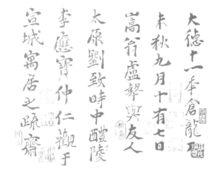 大德十一年倉龍
未秋九月十有七日
嵩翁盧摯與友人
太原劉致時中醴陵
李應實仲仁觀于
宣城寓居之疏齋